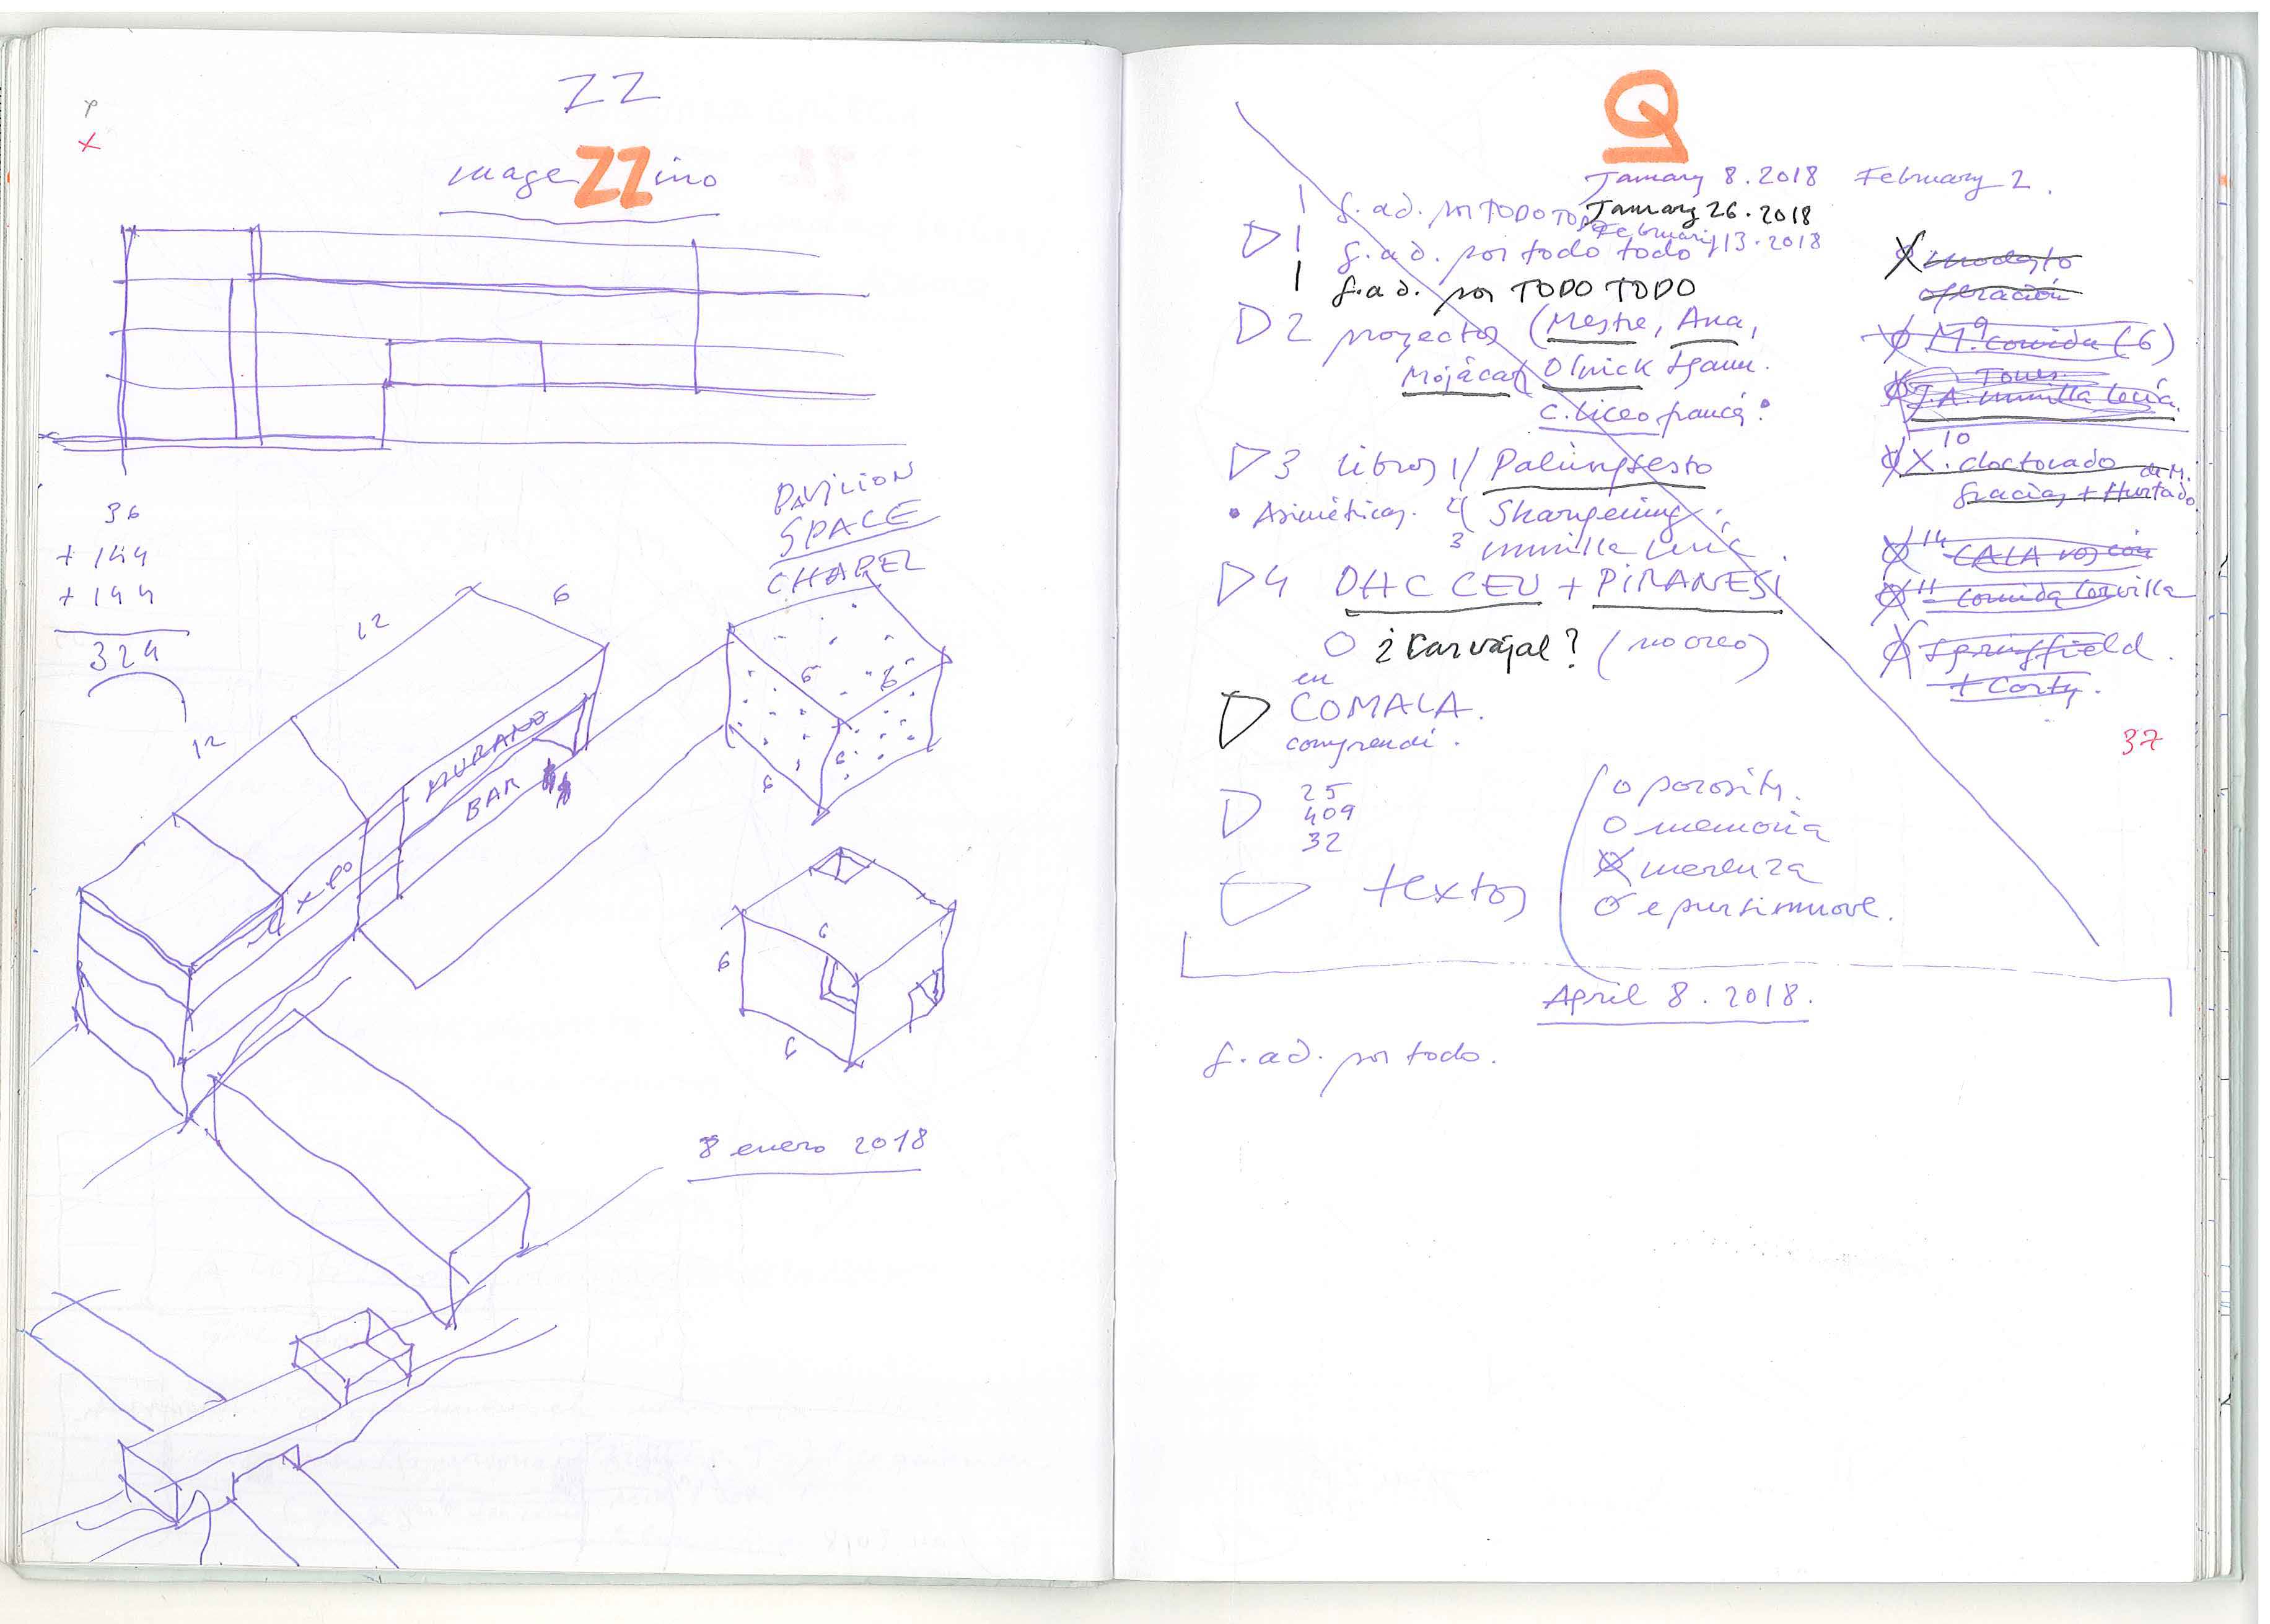 ZZ
mageZZino
36
+ 144
+ 144
324
PAVILION
SPACE
CHAPEL
12
6
12
MURANO
BAR
EXPO
6
6
6
6
6
6
6
8 enero 2018
Q
January 8 . 2018 February 2 .
January 26 . 2018
February 13 . 2018
1 g. ad. por TODO TODO
1 g. ad. por todo todo
1 g. ad. por TODO TODO
2 proyectos (Mestre, Ana,
Mojácar, Olnick
c. liceo francés
3 libros 1/ Palimpsesto
4
3 munilla lería
4 DHC CEU + PIRANESI
¿Carvajal? (no creo)
en
COMALA.
comprendí.
25
409
32
textos
o porosity.
o memoria
merluza
o e pur si muove.
modesto
operación
M.ª comida (6)
Tones
J.A. munilla lería.
10
X. doctorado de M.
Gracias + Hurtado
14
11
Springfield.
37
April 8 . 2018.
g. ad. por todo.